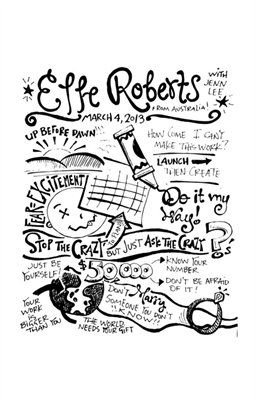 Effe Roberts
WITH
JENN
LEE
MARCH 4, 2013
FROM AUSTRALIA!
UP BEFORE DAWN
HOW COME I CAN'T
MAKE THIS WORK?
LAUNCH
THEN CREATE
FEAR=EXCITEMENT
Do it my
Way!
PLANNED
STOP THE CRAZY
BUT JUST ASK THE CRAZY ?'s
JUST BE
YOURSELF!
$50000
KNOW YOUR
NUMBER
DON'T BE AFRAID
OF IT!
YOUR
WORK
IS
BIGGER
THAN YOU
THE WORLD
NEEDS YOUR GIFT
DON'T Marry
SOMEONE YOU DON'T
"KNOW"!!